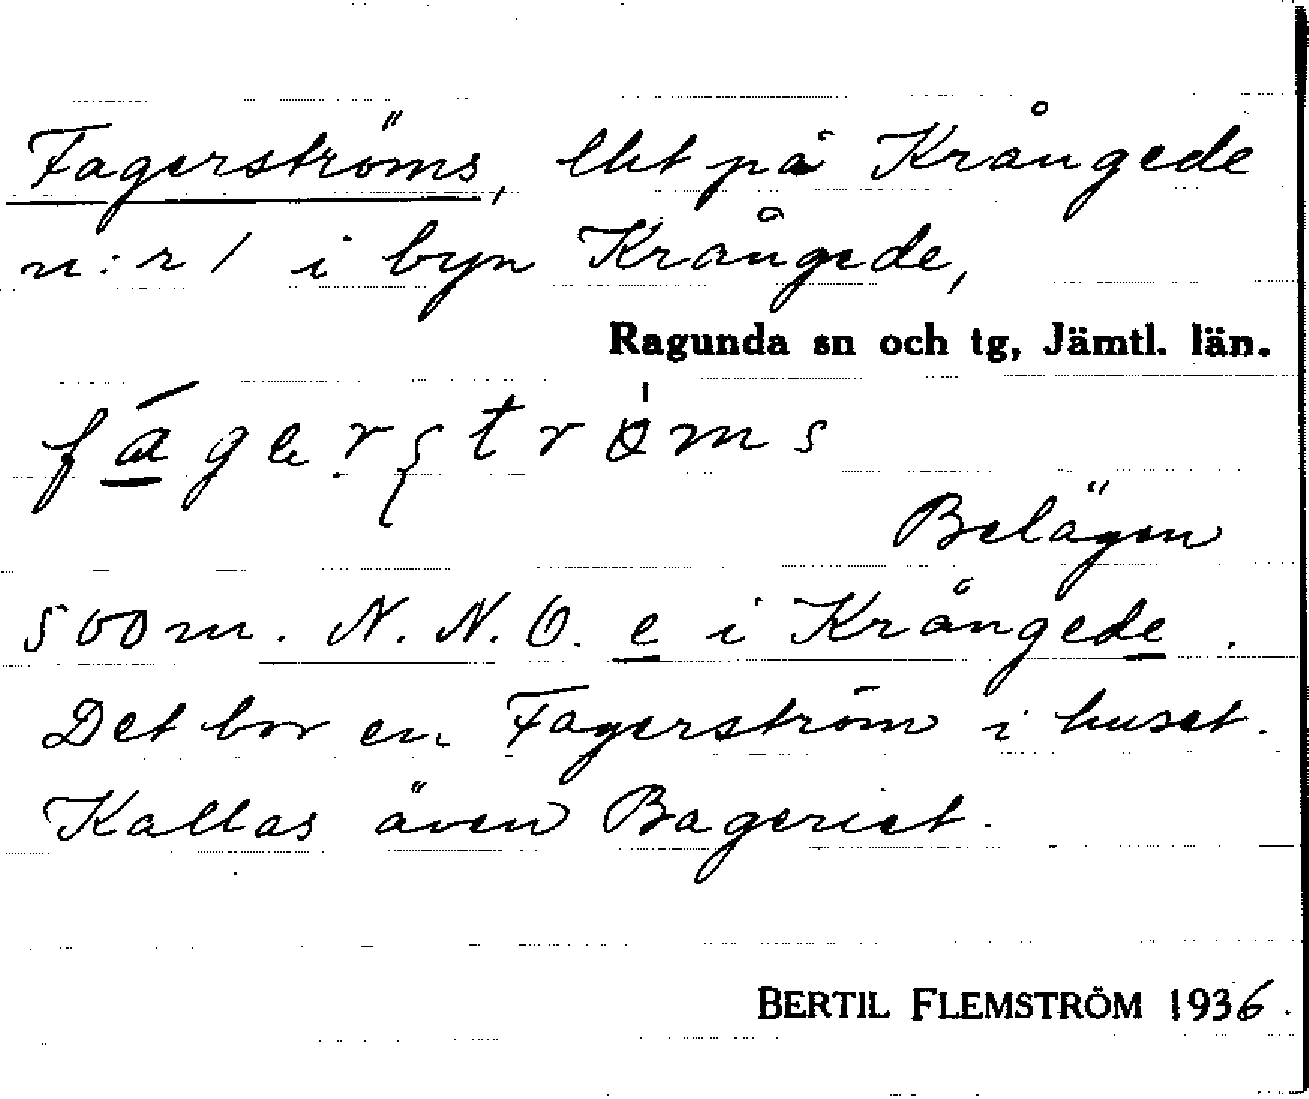 Fagerströms, lht på Krångede
n:r 1 i byn Krångede,
Ragunda sn och tg, Jämtl. län.
fágerströms
Belägen
500 m. N.N.O. e i Krångede.
Det bor en Fagerström i huset.
Kallas även Bageriet.
BERTIL FLEMSTRÖM 1936.